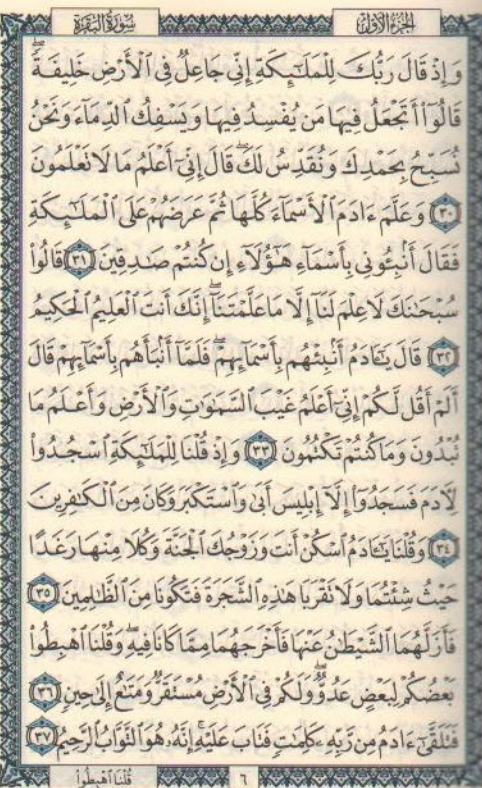 الجزء الأول سورة البقرة
وَإِذْ قَالَ رَبُّكَ لِلْمَلَٰٓئِكَةِ إِنِّى جَاعِلٌ فِى ٱلْأَرْضِ خَلِيفَةً ۖ
قَالُوٓا۟ أَتَجْعَلُ فِيهَا مَن يُفْسِدُ فِيهَا وَيَسْفِكُ ٱلدِّمَآءَ وَنَحْنُ
نُسَبِّحُ بِحَمْدِكَ وَنُقَدِّسُ لَكَ ۖ قَالَ إِنِّىٓ أَعْلَمُ مَا لَا نَعْلَمُونَ
٣٠ وَعَلَّمَ ءَادَمَ ٱلْأَسْمَآءَ كُلَّهَا ثُمَّ عَرَضَهُمْ عَلَى ٱلْمَلَٰٓئِكَةِ
فَقَالَ أَنۢبِـُٔونِى بِأَسْمَآءِ هَٰٓؤُلَآءِ إِن كُنتُمْ صَٰدِقِينَ ٣١ قَالُوا۟
سُبْحَٰنَكَ لَا عِلْمَ لَنَآ إِلَّا مَا عَلَّمْتَنَآ ۖ إِنَّكَ أَنتَ ٱلْعَلِيمُ ٱلْحَكِيمُ
٣٢ قَالَ يَٰٓـَٔادَمُ أَنۢبِئْهُم بِأَسْمَآئِهِمْ ۖ فَلَمَّآ أَنۢبَأَهُم بِأَسْمَآئِهِمْ قَالَ
أَلَمْ أَقُل لَّكُمْ إِنِّىٓ أَعْلَمُ غَيْبَ ٱلسَّمَٰوَٰتِ وَٱلْأَرْضِ وَأَعْلَمُ مَا
تُبْدُونَ وَمَا كُنتُمْ تَكْتُمُونَ ٣٣ وَإِذْ قُلْنَا لِلْمَلَٰٓئِكَةِ ٱسْجُدُوا۟
لِـَٔادَمَ فَسَجَدُوٓا۟ إِلَّآ إِبْلِيسَ أَبَىٰ وَٱسْتَكْبَرَ وَكَانَ مِنَ ٱلْكَٰفِرِينَ
٣٤ وَقُلْنَا يَٰٓـَٔادَمُ ٱسْكُنْ أَنتَ وَزَوْجُكَ ٱلْجَنَّةَ وَكُلَا مِنْهَا رَغَدًا
حَيْثُ شِئْتُمَا وَلَا نَقْرَبَا هَٰذِهِ ٱلشَّجَرَةَ فَتَكُونَا مِنَ ٱلظَّٰلِمِينَ ٣٥
فَأَزَلَّهُمَا ٱلشَّيْطَٰنُ عَنْهَا فَأَخْرَجَهُمَا مِمَّا كَانَا فِيهِ ۖ وَقُلْنَا ٱهْبِطُوا۟
بَعْضُكُمْ لِبَعْضٍ عَدُوٌّ ۖ وَلَكُمْ فِى ٱلْأَرْضِ مُسْتَقَرٌّ وَمَتَٰعٌ إِلَىٰ حِينٍ ٣٦
فَتَلَقَّىٰٓ ءَادَمُ مِن رَّبِّهِۦ كَلِمَٰتٍ فَتَابَ عَلَيْهِ ۚ إِنَّهُۥ هُوَ ٱلتَّوَّابُ ٱلرَّحِيمُ ٣٧
٦ قُلْنَا ٱهْبِطُوا۟